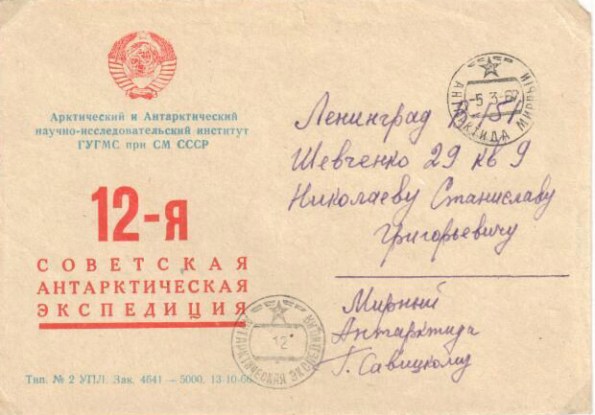 Арктический и Антарктический
научно-исследовательский институт
ГУГМС при СМ СССР
12-я
СОВЕТСКАЯ
АНТАРКТИЧЕСКАЯ
ЭКСПЕДИЦИЯ
Тип. № 2 УПЛ. Зак. 4641 — 5000. 13-10-66
АНТАРКТИДА МИРНЫЙ
-5.3-
Ленинград
Шевченко 29 кв 9
Николаеву Станиславу
Григорьевичу
Мирный
Антарктида
Г. Савицкому
АНТАРКТИЧЕСКАЯ ЭКСПЕДИЦИЯ
12